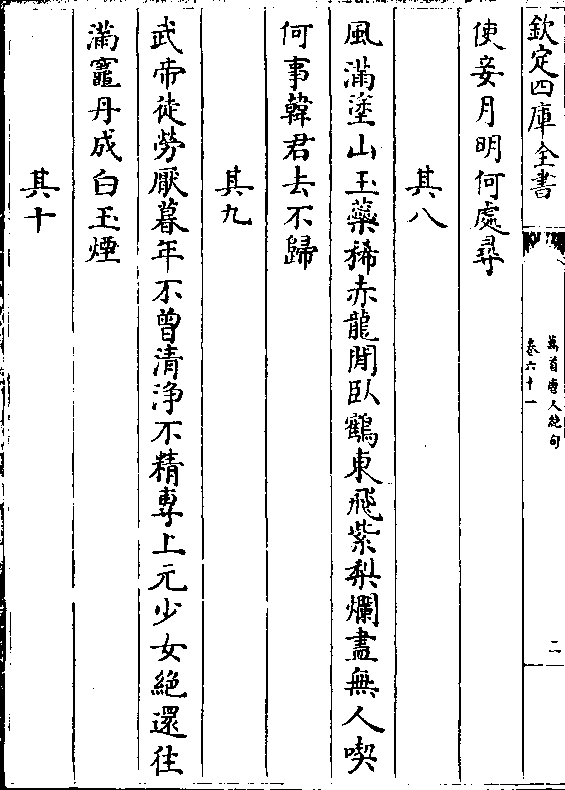 欽定四庫全書
萬首唐人絶句
卷六十一
二
使妾月明何處尋
其八
風滿塗山玉蘂稀赤龍閒臥鶴東飛紫梨爛盡無人喫
何事韓君去不歸
其九
武帝徒勞厭暮年不曾清淨不精專上元少女絶還往
滿竈丹成白玉煙
其十